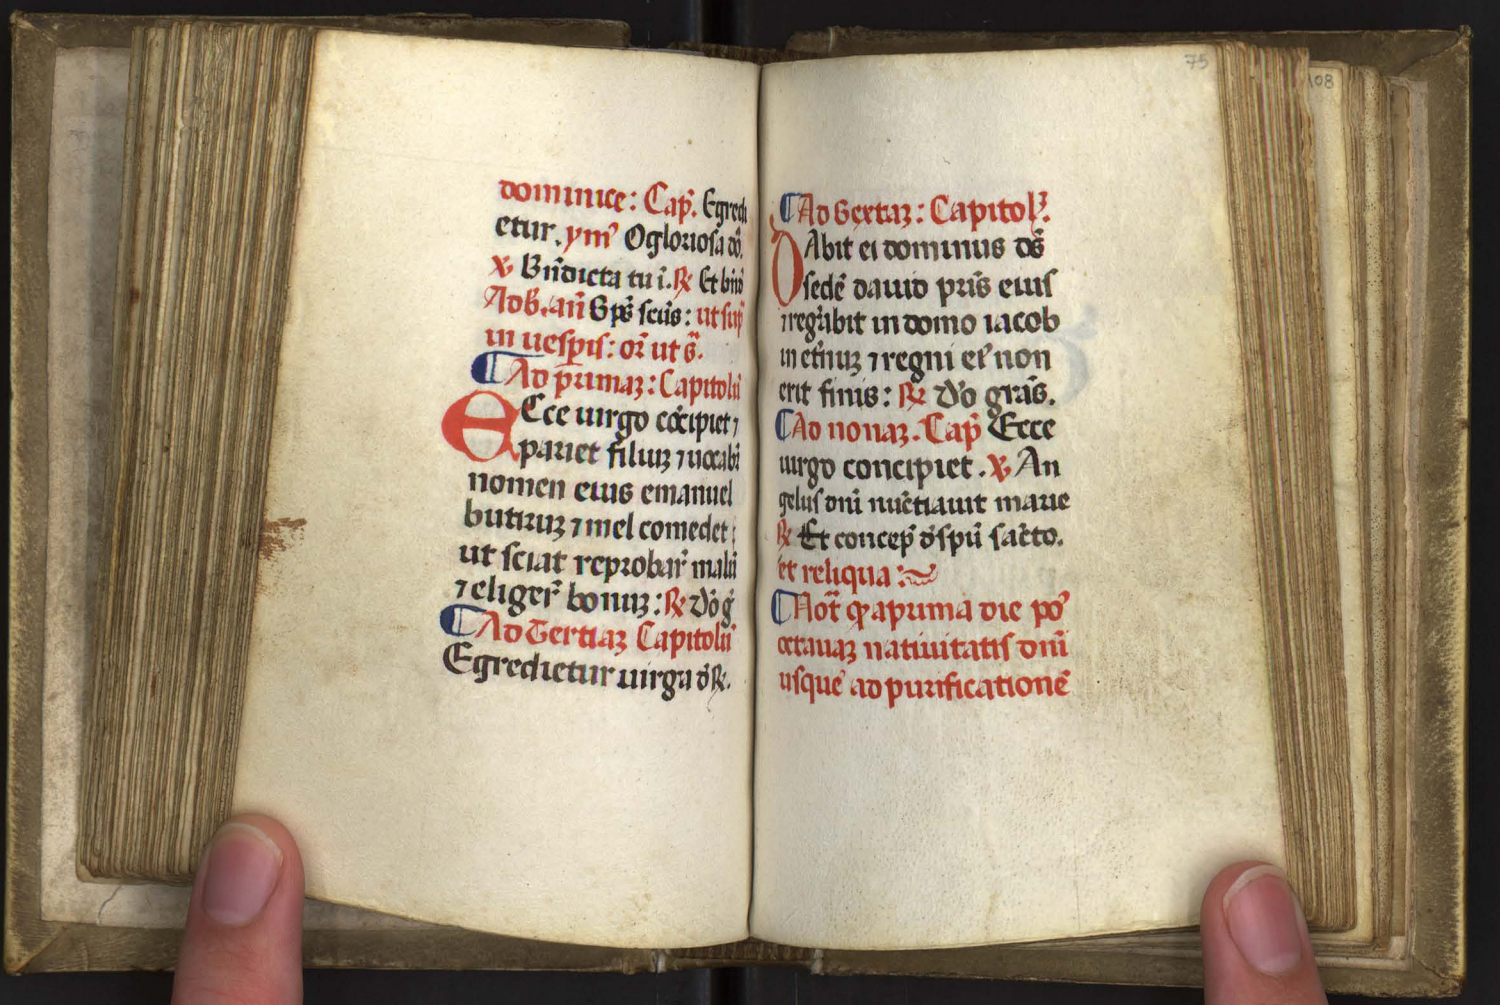 dominice: Cap̃. Egredi
etur. ym̃ᵒ Ogloriosa dõ.
℣ Bñdicta tu ĩ. ℟ Et bñd̃
Ad b. añ Sp̃s sc̃us: ut sup̃
in uesp̃is: or̃ ut s̃.
¶ Ad primaꝫ: Capitolũ
ECce uirgo cõcipiet ⁊
pariet filiuꝫ ⁊ uocabr̃
nomen eius emanuel
butiruꝫ ⁊ mel comedet:
ut sciat reprobar̃ malũ
⁊ eliger̃ bonuꝫ: ℟ Dõ g̃
¶ Ad Tertiaꝫ Capitolũ
Egredietur uirga d̃ ℟.
75
108
¶ Ad Sextaꝫ: Capitolꝫ.
DAbit ei dominus ds̃
sedẽ dauid pr̃is eius
⁊ regñabit in domo iacob
in et̃nuꝫ ⁊ regni eiꝰ non
erit finis: ℟ Dõ grãs.
¶ Ad nonaꝫ. Cap̃ Ecce
uirgo concipiet. ℣ An
gelus dñi nũctiauit marie
℟ Et concep̃ d̃ spũ sãcto.
et reliqua:~
¶ Not̃ ꝙ aprima die poꝰ
octauaꝫ natiuitatis dñi
usque ad purificationẽ